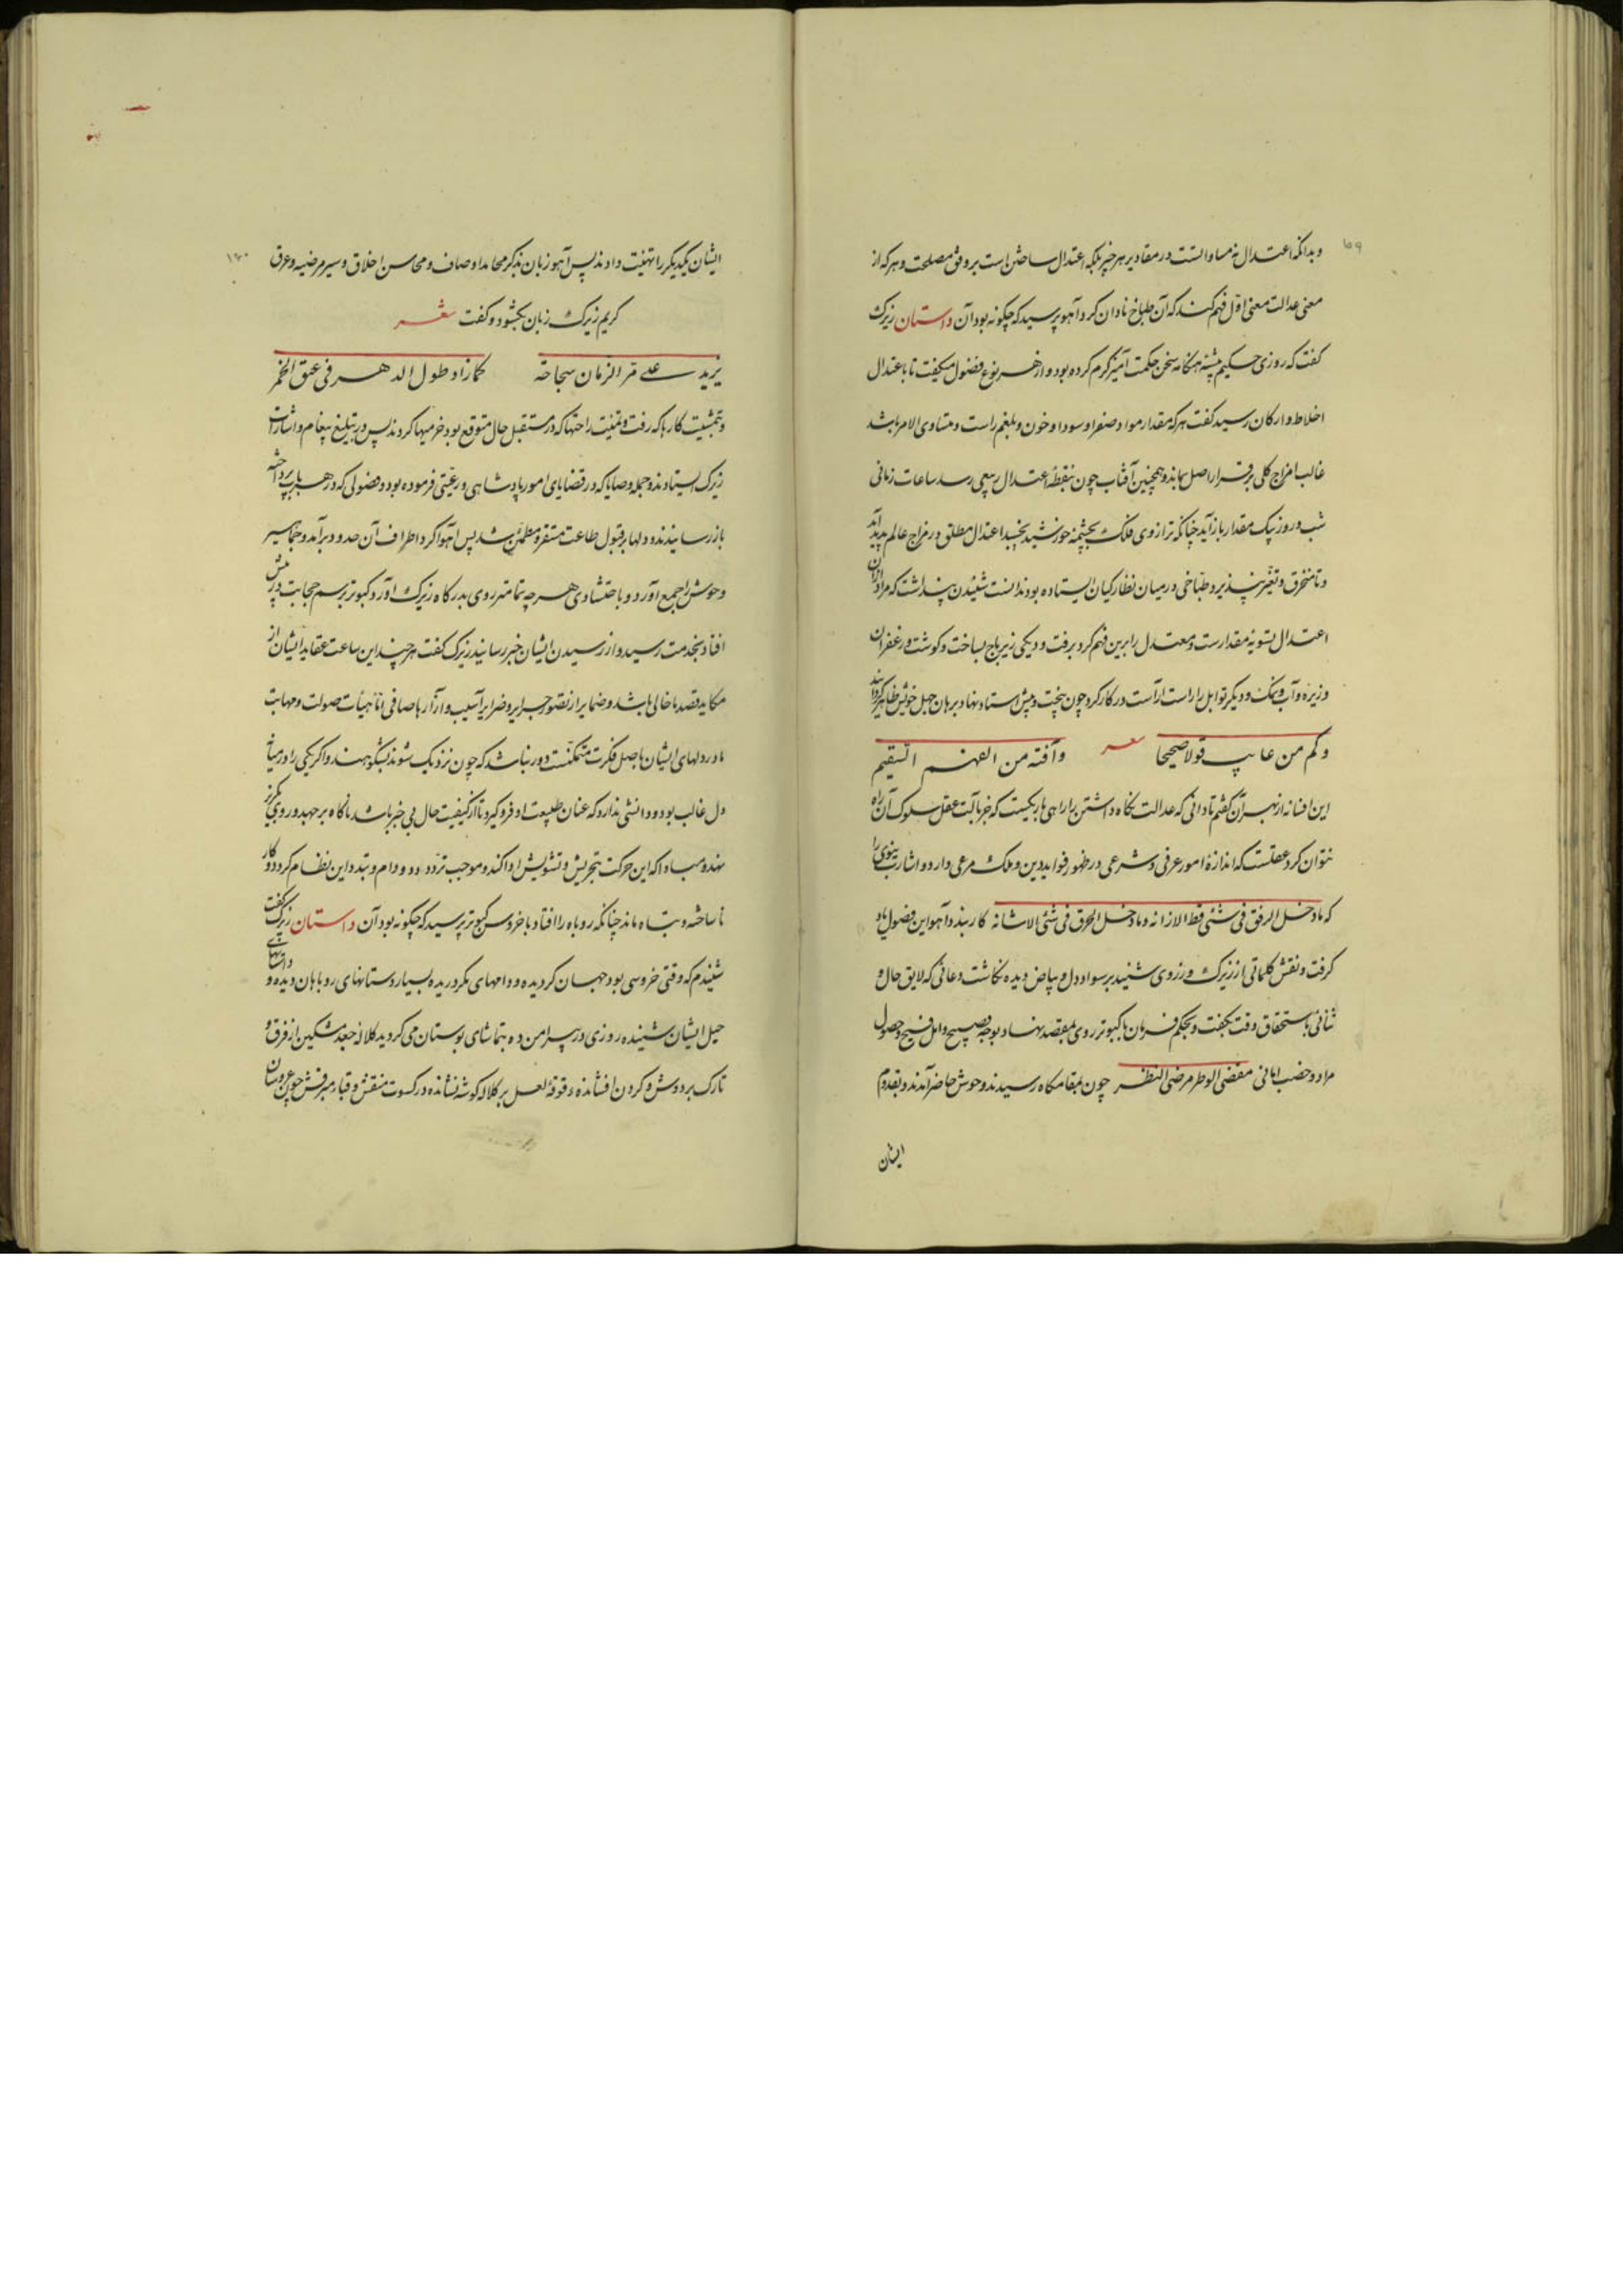 ۱۵۹
وبدانکه اعتدال نه مساواتست در مقادیر هر چیز بلکه اعتدال ساختن است بر وفق مصلحت و هر که از
معنی عدالت معنی اول فهم کند که آن طباخ نادان کرد آهو پرسید که چگونه بود آن داستان زیرک
کفت که روزی حکیم پیشه هنکامه سخن حکمت آمیز کرم کرده بود و از هر نوع فضول میکفت تا باعتدال
اخلاط و ارکان رسید کفت هر که مقدار مواد صفرا و سودا و خون و بلغم راست و متساوی الامر باشد
غالب امزاج کلی برقرار اصل بماند و همچنین آفتاب چون بنقطه اعتدال ربیعی رسد ساعات زمانی
شب و روز بیک مقدار باز آید چنانکه ترازوی فلک بچشمه خورشید بخسبد اعتدال مطلق در مزاج عالم پدید آید
و تا منخرق و تغیر نپذیرد طباخی در میان نظارکیان ایستاده بود ندانست شنیدن پنداشت که مراد از آن
اعتدال تسویه مقدارست و معتدل را برین فهم کرد برفت و دیکی زیرباج بساخت و کوشت و زعفران
و زیره و آب و نمک و دیکر توابل را راست راست در کار کرد چون بپخت و پیش استاد نهاد برهان جهل خویش ظاهر کرداند
وکم من عایب قولا صحیحا شعر وآفته من الفهم السقیم
این افسانه از بهر آن کفتم تا دانی که عدالت نکاه داشتن را راهی باریکست که جز بآلت عقل سلوک آن راه
نتوان کرد عقلست که اندازهٔ امور عرفی و شرعی در ظهور فواید دین و ملک مرعی دارد و اشارت نبوی را
که مادخل الرفق فی شئی قط الا زانه و مادخل الخرق فی شئی الا شانه کار بندد آهو این فصول یاد
کرفت و نقش کلماتی از زیرک و زروی شنید بر سواد دل و بیاض دیده نکاشت و دعائی که لایق حال و
ثنائی باستحقاق وقت بکفت و بحکم فرمان با کبوتر روی بمقصد نهاد بوجه صبیح و امل فسیح و حصول
مراد و خصب امانی مقضی الوطر مرضی النظر چون بمقامکاه رسیدند وحوش حاضر آمدند و بقدوم
ایشان
۱۶۰
ایشان یکدیکر را تهنیت دادند پس آهو زبان بذکر محامد اوصاف و محاسن اخلاق و سیر مرضیه و عرق
کریم زیرک زبان بکشود و کفت شعر
یزید علی مر الزمان سجاحة کما زاد طول الدهر فی عتق الخمر
و بتمشیت کارها که رفت و تمنیت راحتها که در مستقبل حال متوقع بود خرمیها کردند پس در تبلیغ پیغام و اشارات
زیرک ایستادند و جمله وصایا که در قضایای امور پادشاهی و رعیتی فرموده بود و فصولی که در هر باب پرداخته
باز رسانیدند و دلها بر قبول طاعت مستقر و مطمئن شد پس آهوا کرد اطراف آن حدود برآمد و جماهیر
وحوش را جمع آورد و باحتشادی هر چه تمامتر روی بدرکاه زیرک آورد کبوتر برسم حجابت در پیش
افتاد بخدمت رسید و از رسیدن ایشان خبر رسانید زیرک کفت هر چند این ساعت عقاید ایشان از
مکاید قصد ما خالی باشد و ضمایر از تصور جرایر و ضرایر آسیب و آزار ما صافی اما هیات صولت و مهابت
ما در دلهای ایشان باصل فکرت متمکنست دور نباشد که چون نزدیک شوند بشکوهند و اکر یکی را در میانه
دل غالب بود و دانشی ندارد که عنان طبیعت او فرو کیرد تا از کیفیت حال بی خبر باشد ناکاه برجهد و روی بکریز
نهد و مبادا که این حرکت بتحریش و تشویش ادا کند و موجب تردد دد و دام و تبدد این نظام کردد و کار
ناساخته و تباه ماند چنانکه روباه را افتاد با خروس کبوتر پرسید که چگونه بود آن داستان زیرک کفت
شنیدم که وقتی خروسی بود جهان کردیده و دامهای مکر دریده بسیار دستانهای روباهان دیده و داستانهای
حیل ایشان شنیده روزی در پیرامن ده بتماشای بوستان می کردید کلاله جعد مشکین از فرق و
تارک بر دوش و کردن افشانده و قوقهٔ لعل بر کلاله کوشه نشانده در کسوت منقش و قبای مبرقش چون عروسان